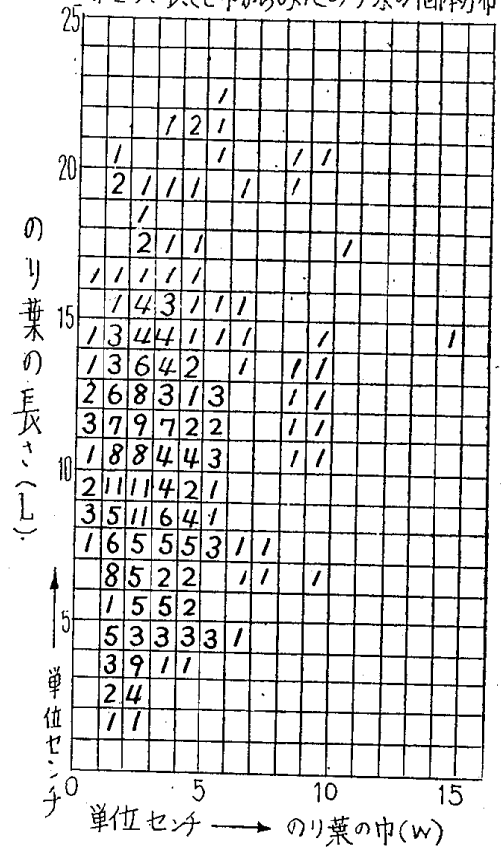 25
1
1 2 1
1 1 1 1
20
2 1 1 1 1 1
1
2 1 1 1
1 1 1 1 1
1 4 3 1 1 1
15
1 3 4 4 1 1 1 1 1
1 3 6 4 2 1 1 1
2 6 8 3 1 3 1 1
3 7 9 7 2 2 1 1
1 8 8 4 4 3 1 1
10
2 11 11 4 2 1
3 5 11 6 4 1
1 6 5 5 5 3 1 1
8 5 2 2 1 1 1
1 5 5 2
5
5 3 3 3 3 1
3 9 1 1
2 4
1 1
0 5 10 15
のり葉の長さ(L)
単位センチ
単位センチ → のり葉の巾(W)